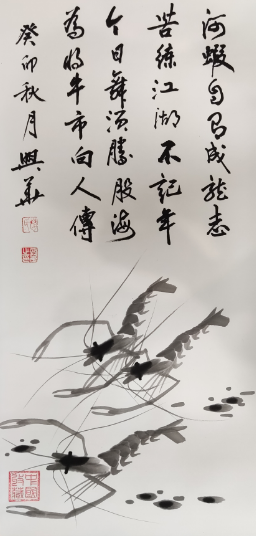 河蝦自有成龍志
苦練江湖不記年
今日舞須勝股海
為將牛市向人傳
癸卯秋月興華